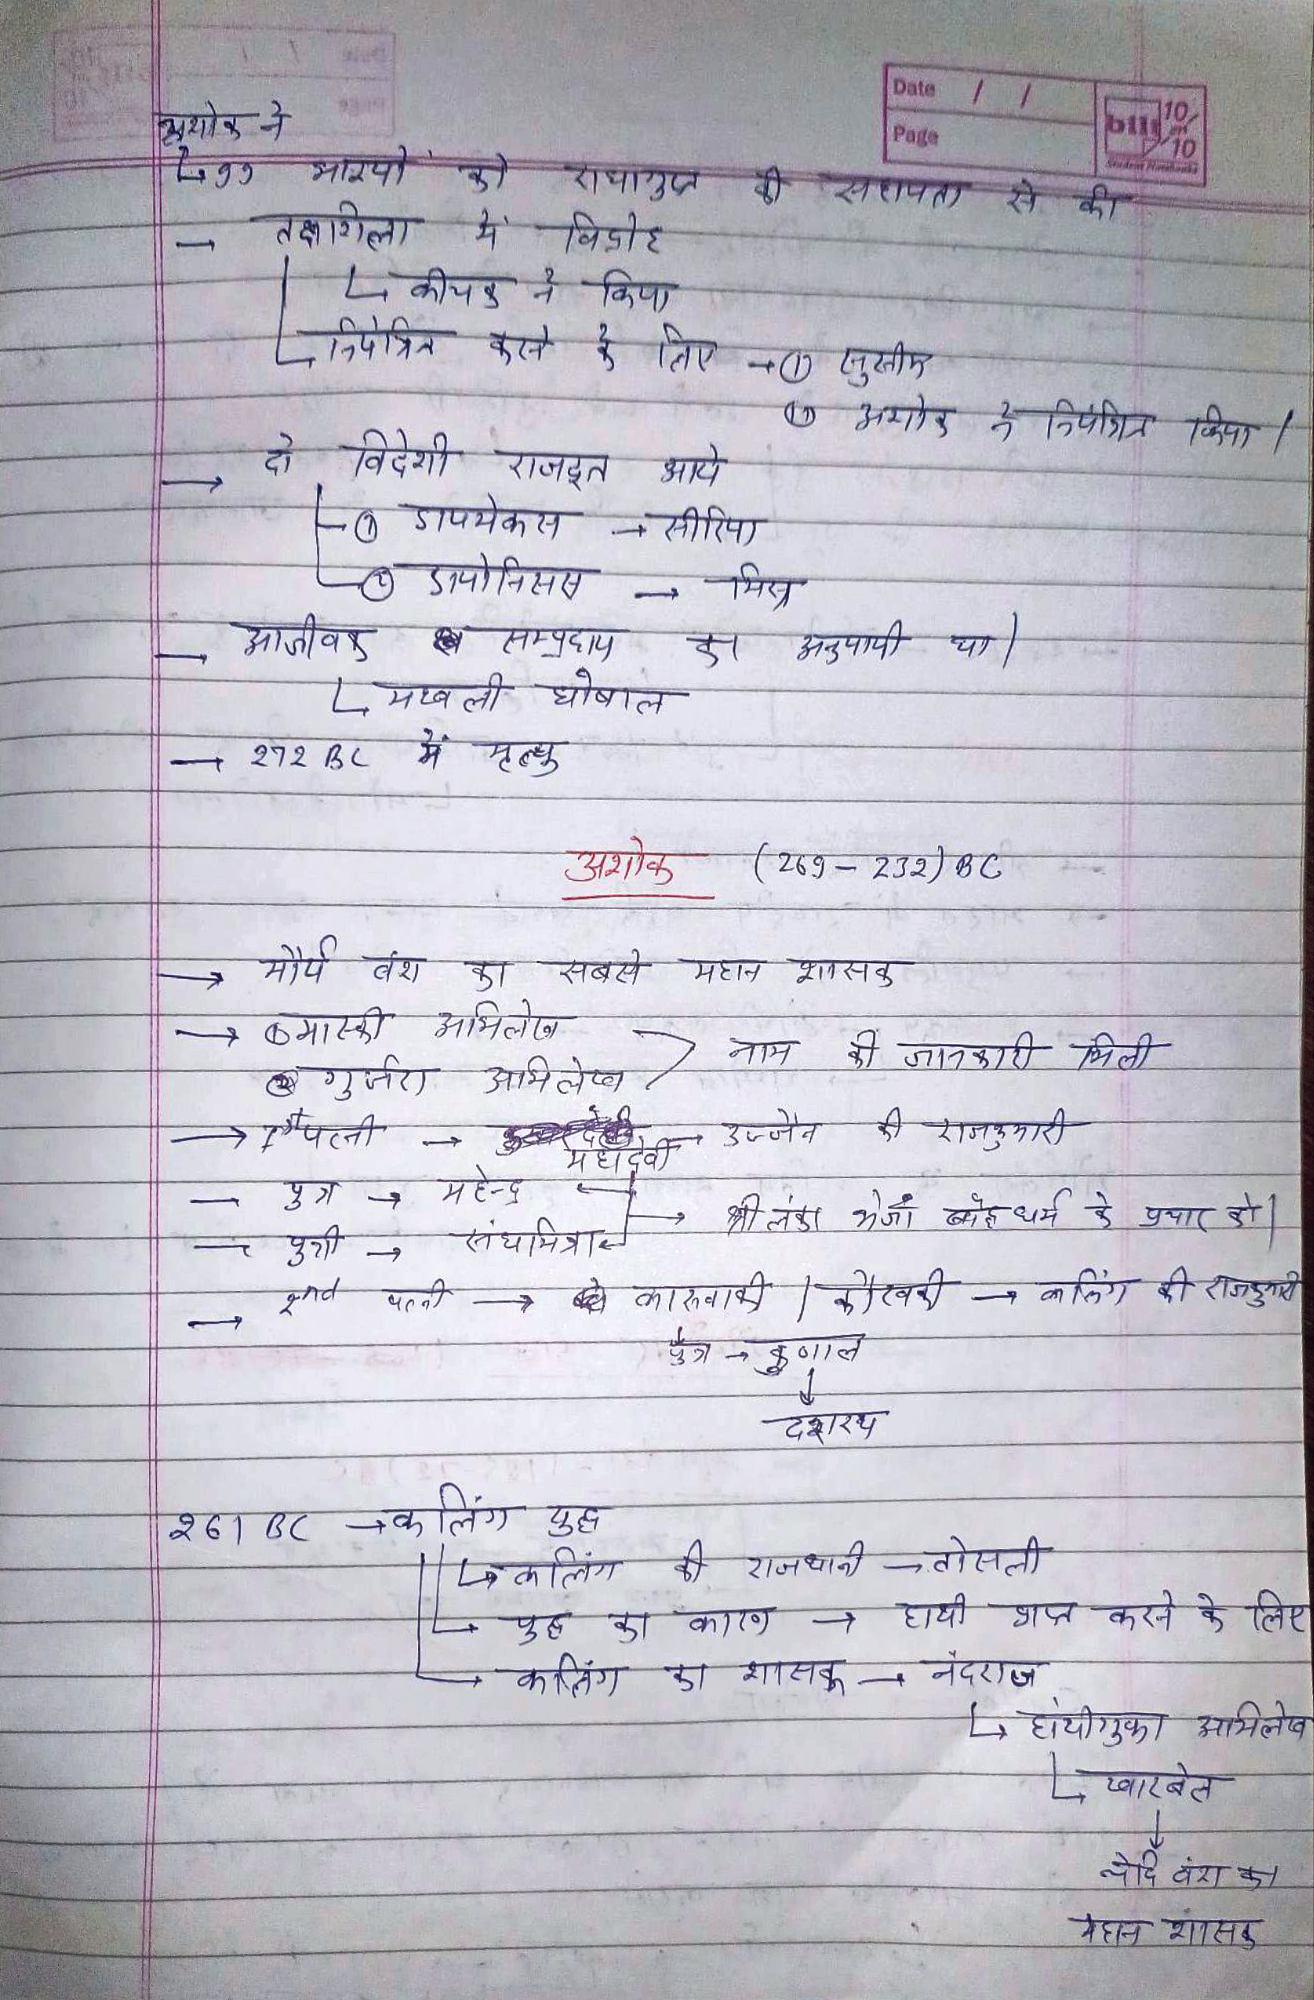 Date / /
Page
bill 10/10
Student Notebooks
अशोक ने
↳ 99 भाइयों को राधागुप्त की सहायता से की
— तक्षशिला में विद्रोह
↳ कीचक ने किया
↳ नियंत्रित करने के लिए → ① सुसीम
② अशोक ने नियंत्रित किया।
→ दो विदेशी राजदूत आये
① डायमेकस → सीरिया
② डायोनिसस → मिस्र
→ आजीवक सम्प्रदाय का अनुयायी था।
↳ मखली घोषाल
→ 272 BC में मृत्यु
अशोक (269 – 232) BC
→ मौर्य वंश का सबसे महान शासक
→ ① मास्की अभिलेख
② गुर्जरा अभिलेख > नाम की जानकारी मिली
→ 1st पत्नी → महादेवी → उज्जैन की राजकुमारी
— पुत्र → महेन्द्र
— पुत्री → संघमित्रा → श्रीलंका भेजा बौद्ध धर्म के प्रचार को।
→ 2nd पत्नी → कारुवाकी / कौरवकी → कलिंग की राजकुमारी
पुत्र → कुणाल
↓
दशरथ
261 BC → कलिंग युद्ध
↳ कलिंग की राजधानी → तोसली
↳ युद्ध का कारण → हाथी प्राप्त करने के लिए
↳ कलिंग का शासक → नंदराज
↳ हाथीगुफा अभिलेख
↳ खारबेल
↓
चेदि वंश का
महान शासक